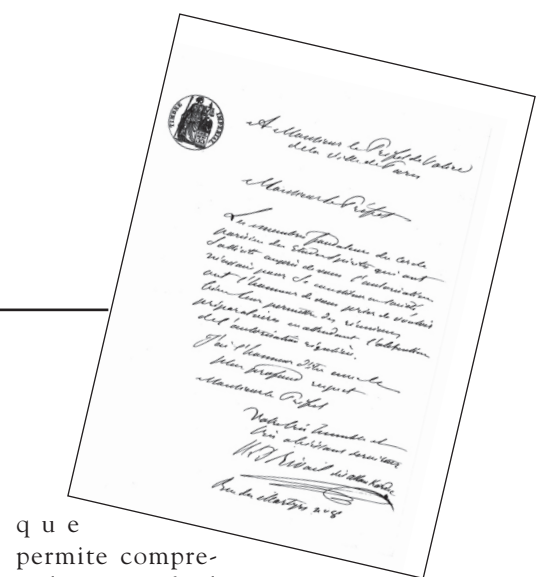 TIMBRE IMPÉRIAL
A Monsieur le Préfet de Police
de la Ville de Paris
Monsieur le Préfet
Les membres fondateurs du Cercle
parisien des Études spirites qui ont
sollicité auprès de vous l'autorisation
nécessaire pour se constituer en société,
ont l'honneur de vous prier de vouloir
bien leur permettre des réunions
préparatoires en attendant l'obtention
de l'autorisation régulière.
J'ai l'honneur d'être avec le
plus profond respect
Monsieur le Préfet
Votre très humble et
très obéissant serviteur
H L D Rivail dit Allan Kardec
Rue des Martyrs, n° 8
que
permite compre-